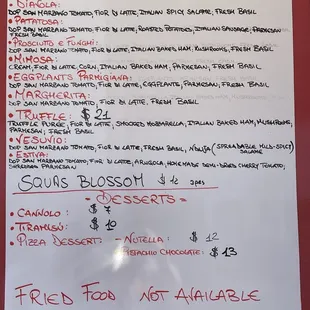 • DIAVOLA:
DOP SAN MARZANO TOMATO, FIOR DI LATTE, ITALIAN SPICY SALAME, FRESH BASIL
• PATATOSA:
DOP SAN MARZANO TOMATO, FIOR DI LATTE, ROASTED POTATOES, ITALIAN SAUSAGE, PARMESAN,
FRESH BASIL
• PROSCIUTTO E FUNGHI:
DOP SAN MARZANO TOMATO, FIOR DI LATTE, ITALIAN BAKED HAM, MUSHROOMS, FRESH BASIL
• MIMOSA:
CREAM, FIOR DI LATTE, CORN, ITALIAN BAKED HAM, PARMESAN, FRESH BASIL
• EGGPLANTS PARMIGIANA:
DOP SAN MARZANO TOMATO, FIOR DI LATTE, EGGPLANTS, PARMESAN, FRESH BASIL
• MARGHERITA:
DOP SAN MARZANO TOMATO, FIOR DI LATTE, FRESH BASIL
• TRUFFLE: $ 21
TRUFFLE PUREE, FIOR DI LATTE, SMOCKED MOZZARELLA, ITALIAN BAKED HAM, MUSHROOMS,
PARMESAN, FRESH BASIL
• VESUVIO:
DOP SAN MARZANO TOMATO, FIOR DI LATTE, FRESH BASIL, NDUJA (SPREADABLE MILD-SPICY
SALAME
• ESTIVA:
DOP SAN MARZANO TOMATO, FIOR DI LATTE, ARUGOLA, HOMEMADE DEMI-DRIED CHERRY TOMATO,
SHREDDED PARMESAN
SQUAS BLOSSOM $ 12 3pcs
- DESSERTS -
• CANNOLO: $ 7
• TIRAMISÚ: $ 10
• PIZZA DESSERT: - NUTELLA: $ 12
- PISTACHIO CHOCOLATE: $ 13
FRIED FOOD NOT AVAILABLE